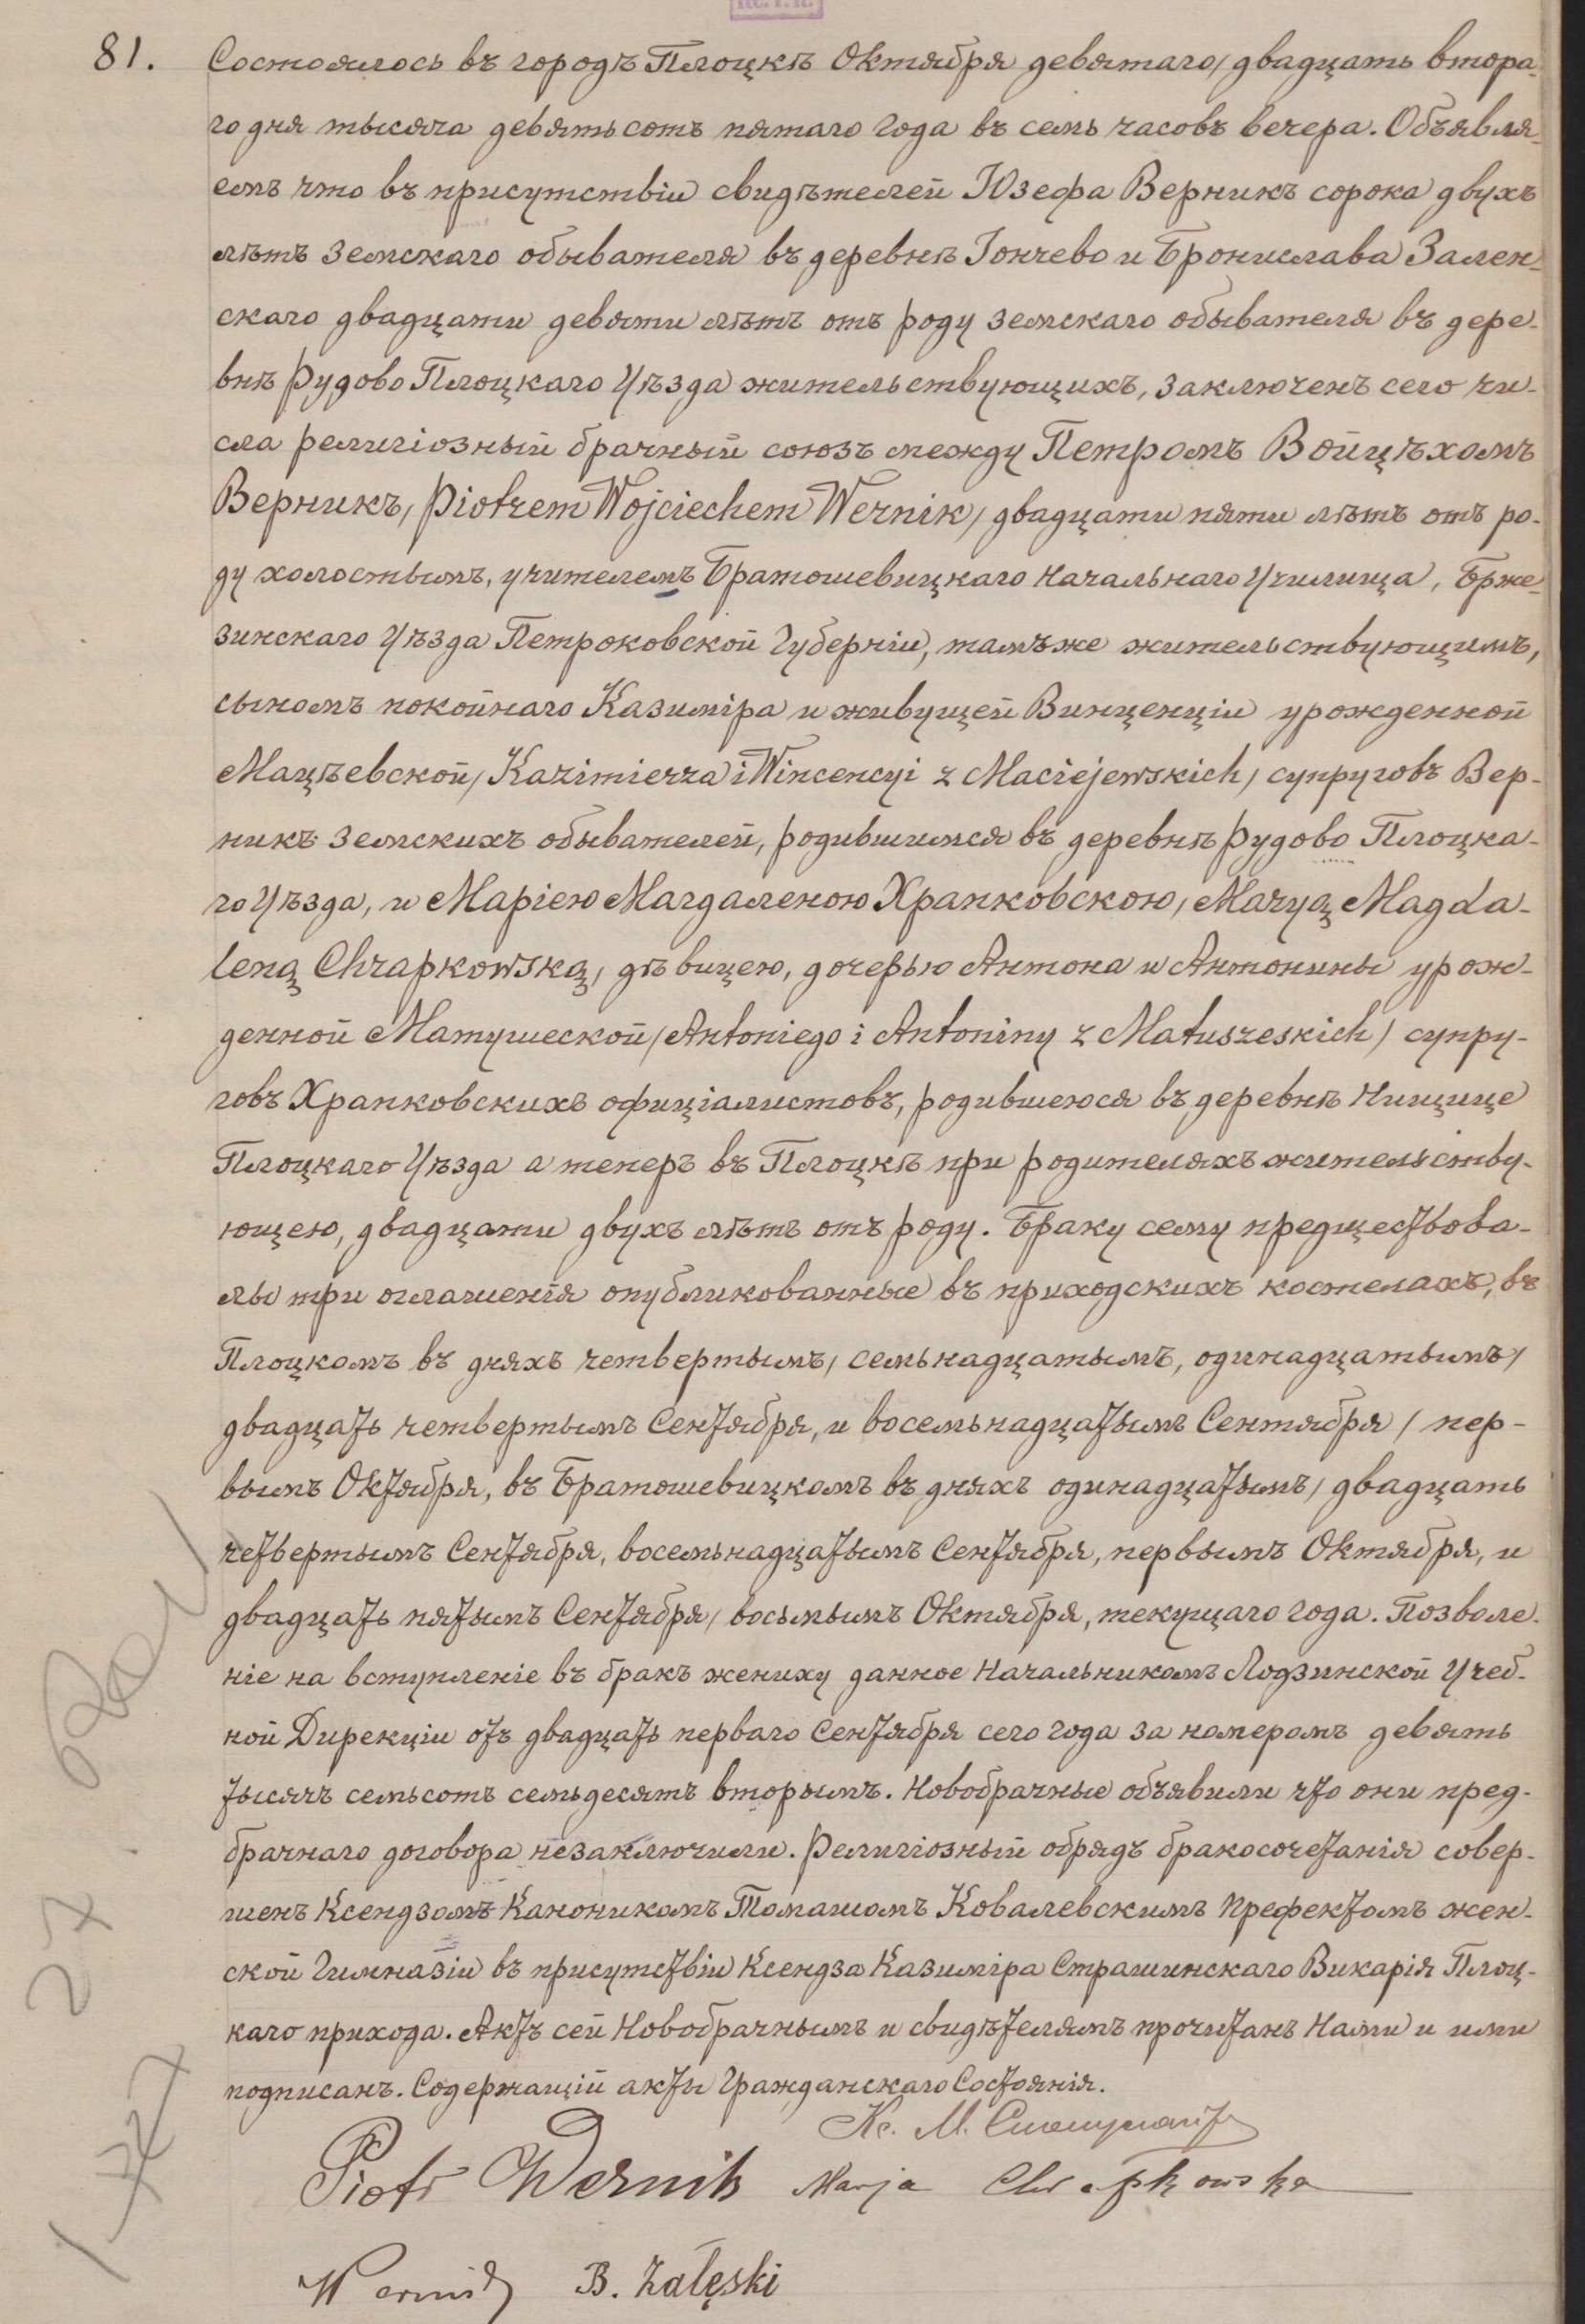 81. Состоялось въ городѣ Плоцкѣ Октября девятаго/двадцать втора-
го дня тысяча девятьсотъ пятаго года въ семь часовъ вечера. Объявля-
емъ что въ присутствіи свидѣтелей Юзефа Верникъ сорока двухъ
лѣтъ земскаго обывателя въ деревнѣ Гончево и Бронислава Зален-
скаго двадцати девяти лѣтъ отъ роду земскаго обывателя въ дере-
внѣ Рудово Плоцкаго Уѣзда жительствующихъ, заключенъ сего чи-
сла религіозный брачный союзъ между Петромъ Войцѣхомъ
Верникъ, /Piotrem Wojciechem Wernik/ двадцати пяти лѣтъ отъ ро-
ду холостымъ, учителемъ Братошевицкаго Начальнаго Училища, Брже-
зинскаго Уѣзда Петроковской Губерніи, тамъже жительствующимъ,
сыномъ покойнаго Казиміра и живущей Винценціи урожденной
Мацѣевской, /Kazimierza i Wincencyi z Maciejewskich/ супруговъ Вер-
никъ земскихъ обывателей, родившимся въ деревнѣ Рудово Плоцка-
го Уѣзда, и Маріею Магдаленою Храпковскою, /Maryą Magda-
leną Chrapkowską/ дѣвицею, дочерью Антона и Антонины урож-
денной Матушеской /Antoniego i Antoniny z Matuszeskich/ супру-
говъ Храпковскихъ официалистовъ, родившеюся въ деревнѣ Нищице
Плоцкаго Уѣзда а теперъ въ Плоцкѣ при родителяхъ жительству-
ющею, двадцати двухъ лѣтъ отъ роду. Браку сему предшествова-
лы три оглашенія опубликованные въ приходскихъ костелахъ, въ
Плоцкомъ въ дняхъ четвертымъ/семьнадцатымъ, одинадцатымъ/
двадцать четвертымъ Сентября, и восемьнадцатымъ Сентября/пер-
вымъ Октября, въ Братошевицкомъ въ дняхъ одинадцатымъ/двадцать
четвертымъ Сентября, восемьнадцатымъ Сентября, первымъ Октября, и
двадцать пятымъ Сентября/восьмымъ Октября, текущаго года. Позволе-
ніе на вступленіе въ бракъ жениху данное Начальникомъ Лодзинской Учеб-
ной Дирекціи отъ двадцать перваго Сентября сего года за номеромъ девять
тысячъ семьсотъ семьдесятъ вторымъ. Новобрачные объявили что они пред-
брачнаго договора незаключили. Религіозный обрядъ бракосочетанія совер-
шенъ Ксендзомъ Каноникомъ Томашомъ Ковалевскимъ Префектомъ жен-
ской Гимназіи въ присутствіи Ксендза Казиміра Страшинскаго Викарія Плоц-
каго прихода. Актъ сей Новобрачнымъ и свидѣтелямъ прочитанъ Нами и ими
подписанъ. Содержащій акты Гражданскаго Состоянія.
Кс. М.
Piotr Wernik Marja Chrapkowska
Wernik B. Załęski